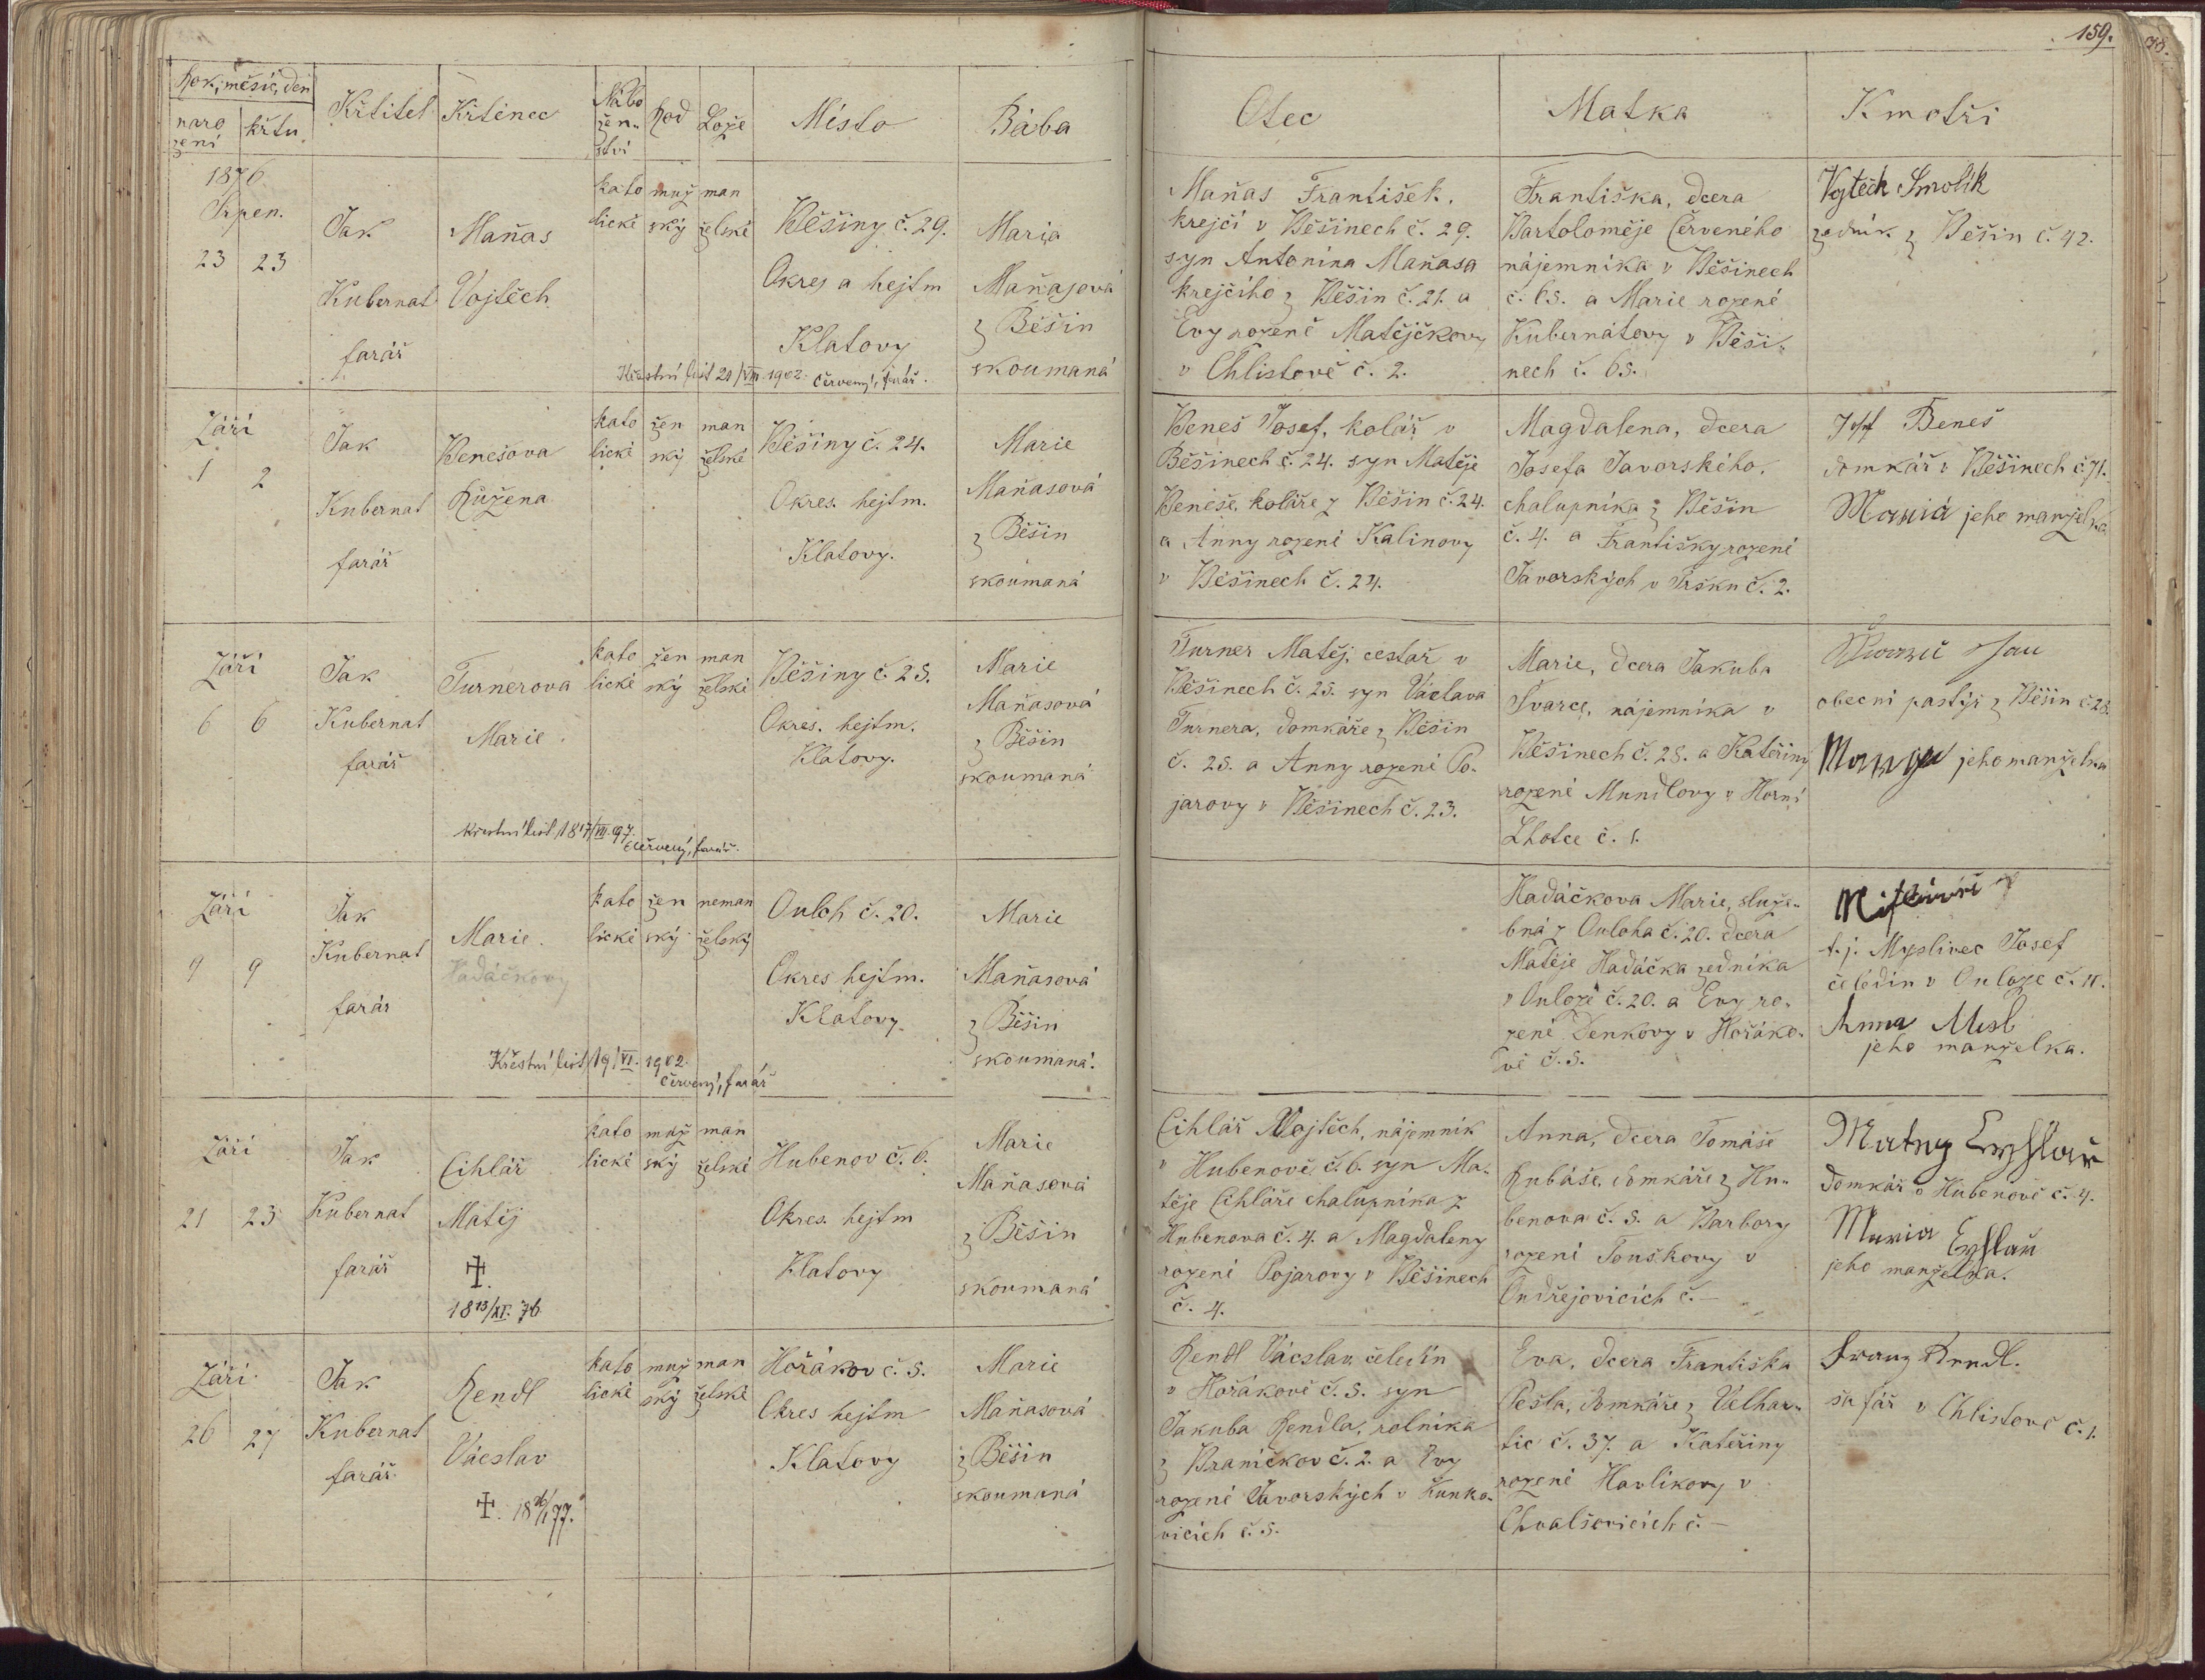 159.
Rok, měsíc, den
naro
zení
křtu
Křtitel
Křtěnec
Nábo
žen-
ství
Rod
Lože
Místo
Bába
Otec
Matka
Kmotři
1876
Srpen.
23 23
Jak
Kubernat
farář
Maňas
Vojtěch
kato
lické
muž
ský
man
želské
Běšiny č. 29.
Okres a hejtm
Klatovy
Křestní list 20/VIII 1902. Červený, farář.
Maria
Maňasová
z Běšin
skoumaná
Maňas František,
krejčí v Běšinech č. 29.
syn Antonína Maňasa
krejčího z Běšin č. 21. a
Evy rozené Matějčkovy
v Chlistově č. 2.
Františka, dcera
Bartoloměje Červeného
nájemníka v Běšinech
č. 65. a Marie rozené
Kubernátovy v Běši-
nech č. 65.
Vojtěch Smolík
zedník z Běšin č. 42.
Září
1 2
Jak
Kubernat
farář
Benešova
Růžena
kato
lické
žen
ský
man
želské
Běšiny č. 24.
Okres. hejtm.
Klatovy.
Marie
Maňasová
z Běšin
skoumaná
Beneš Josef, kolář v
Běšinech č. 24. syn Matěje
Beneše, koláře z Běšin č. 24.
a Anny rozené Kalinovy
v Běšinech č. 24.
Magdalena, dcera
Josefa Javorského,
chalupníka z Běšin
č. 4. a Františky rozené
Javorských v Trsku č. 2.
Josef Beneš
domkář v Běšinech č. 71.
Maria jeho manželka
Září
6 6
Jak
Kubernat
farář
Turnerova
Marie
křestní list 18 17/VII. 97.
Červený, farář.
kato
lické
žen
ský
man
želské
Běšiny č. 25.
Okres. hejtm.
Klatovy.
Marie
Maňasová
z Běšin
skoumaná
Turner Matěj, cestář v
Běšinech č. 25. syn Václava
Turnera, domkáře z Běšin
č. 25. a Anny rozené Po-
jarovy v Běšinech č. 23.
Marie, dcera Jakuba
Švarce, nájemníka v
Běšinech č. 28. a Kateřiny
rozené Mundlovy v Horní
Lhotce č. 1.
Jan
obecní pastýř z Běšin č. 28.
jeho manželka
Září
9 9
Jak
Kubernat
farár
Marie.
Hadáčkovy
Křestní list 19/VI. 1902.
Červený, farář
kato
lické
žen
ský
neman
želský
Ouloh č. 20.
Okres hejtm.
Klatovy.
Marie
Maňasová
z Běšin
skoumaná.
Hadáčkova Marie, služe-
bná z Ouloha č. 20. dcera
Matěje Hadáčka zedníka
v Ouloze č. 20. a Evy ro-
zené Denkovy v Hořáko-
vě č. 5.
t. j. Myslivec Josef
čeledín v Ouloze č. 11.
Anna Misl
jeho manželka.
Září
21 23
Jak
Kubernat
farář
Cihlář
Matěj
‡.
18 13/XI. 76
kato
lické
muž
ský
man
želské
Hubenov č. 6.
Okres. hejtm
Klatovy
Marie
Maňasová
z Běšin
skoumaná
Cihlář Vojtěch, nájemník
v Hubenově č. 6. syn Ma-
těje Cihláře chalupníka z
Hubenova č. 4. a Magdaleny
rozené Pojarovy v Běšinech
č. 4.
Anna, dcera Tomáše
Rubáše, domkáře z Hu-
benova č. 5. a Barbory
rozené Touškovy v
Ondřejovicích č. —
Matvy Cyhlař
domkář v Hubenově č. 4.
Maria Cyhlař
jeho manželka.
Září
26 27
Jak
Kubernat
farář
Rendl
Vácslav
‡. 18 26/1 77.
kato
lické
muž
ský
man
želské
Hořákov č. 5.
Okres hejtm
Klatovy
Marie
Maňasová
z Běšin
skoumaná
Rendl Vácslav, čeledín
v Hořákově č. 5. syn
Jakuba Rendla, rolníka
z Braníčkov č. 2. a Evy
rozené Javorských v Kunko-
vicích č. 5.
Eva, dcera Františka
Pešla, domkáře z Velhar-
tic č. 37. a Kateřiny
rozené Havlíkovy v
Chvalšovicích č. —
Franz Rendl.
šafář v Chlistově č. 1.